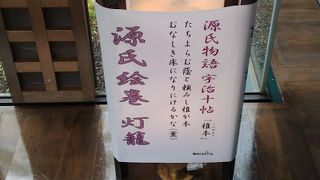 源氏物語 宇治十帖「椎本」
たちよらむ蔭と頼みし椎が本
むなしき床になりにけるかな(薫)
源氏絵巻 灯籠